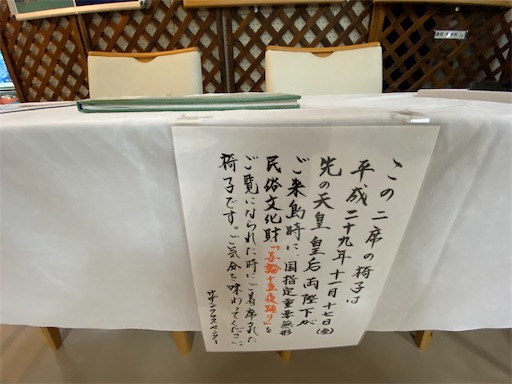 この二席の椅子は
平成二十九年十一月十七日(金)
先の天皇皇后両陛下が
ご来島時に、国指定重要無形
民俗文化財「与論十五夜踊り」を
ご覧になられた時にご着席された
椅子です。ご気分を味わってください。
サザンクロスセンター